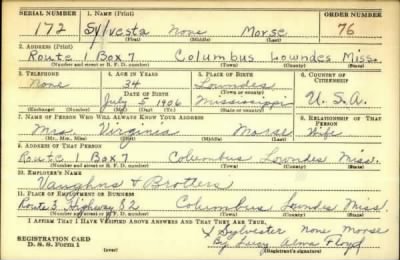 SERIAL NUMBER 1. NAME (Print) ORDER NUMBER
172 Sylvesta None Morse 76
(First) (Middle) (Last)
2. ADDRESS (Print)
Route 1 Box 7 Columbus Lowndes Miss.
(Number and street or R. F. D. number) (Town) (County) (State)
3. TELEPHONE 4. AGE IN YEARS 5. PLACE OF BIRTH 6. COUNTRY OF CITIZENSHIP
None 34 Lowndes
DATE OF BIRTH (Town or county)
July 5 1906 Mississippi U.S.A.
(Exchange) (Number) (Mo.) (Day) (Yr.) (State or country)
7. NAME OF PERSON WHO WILL ALWAYS KNOW YOUR ADDRESS 8. RELATIONSHIP OF THAT PERSON
Mrs. Virginia Morse Wife
(Mr., Mrs., Miss) (First) (Middle) (Last)
9. ADDRESS OF THAT PERSON
Route 1 Box 7 Columbus Lowndes Miss.
(Number and street or R. F. D. number) (Town) (County) (State)
10. EMPLOYER'S NAME
Vaughns & Brotters
11. PLACE OF EMPLOYMENT OR BUSINESS
Route 3 Highway 82 Columbus Lowndes Miss.
(Number and street or R. F. D. number) (Town) (County) (State)
I AFFIRM THAT I HAVE VERIFIED ABOVE ANSWERS AND THAT THEY ARE TRUE.
REGISTRATION CARD X Sylvester None Morse
D. S. S. Form 1 By Alma Floyd
(over) (Registrant's signature)